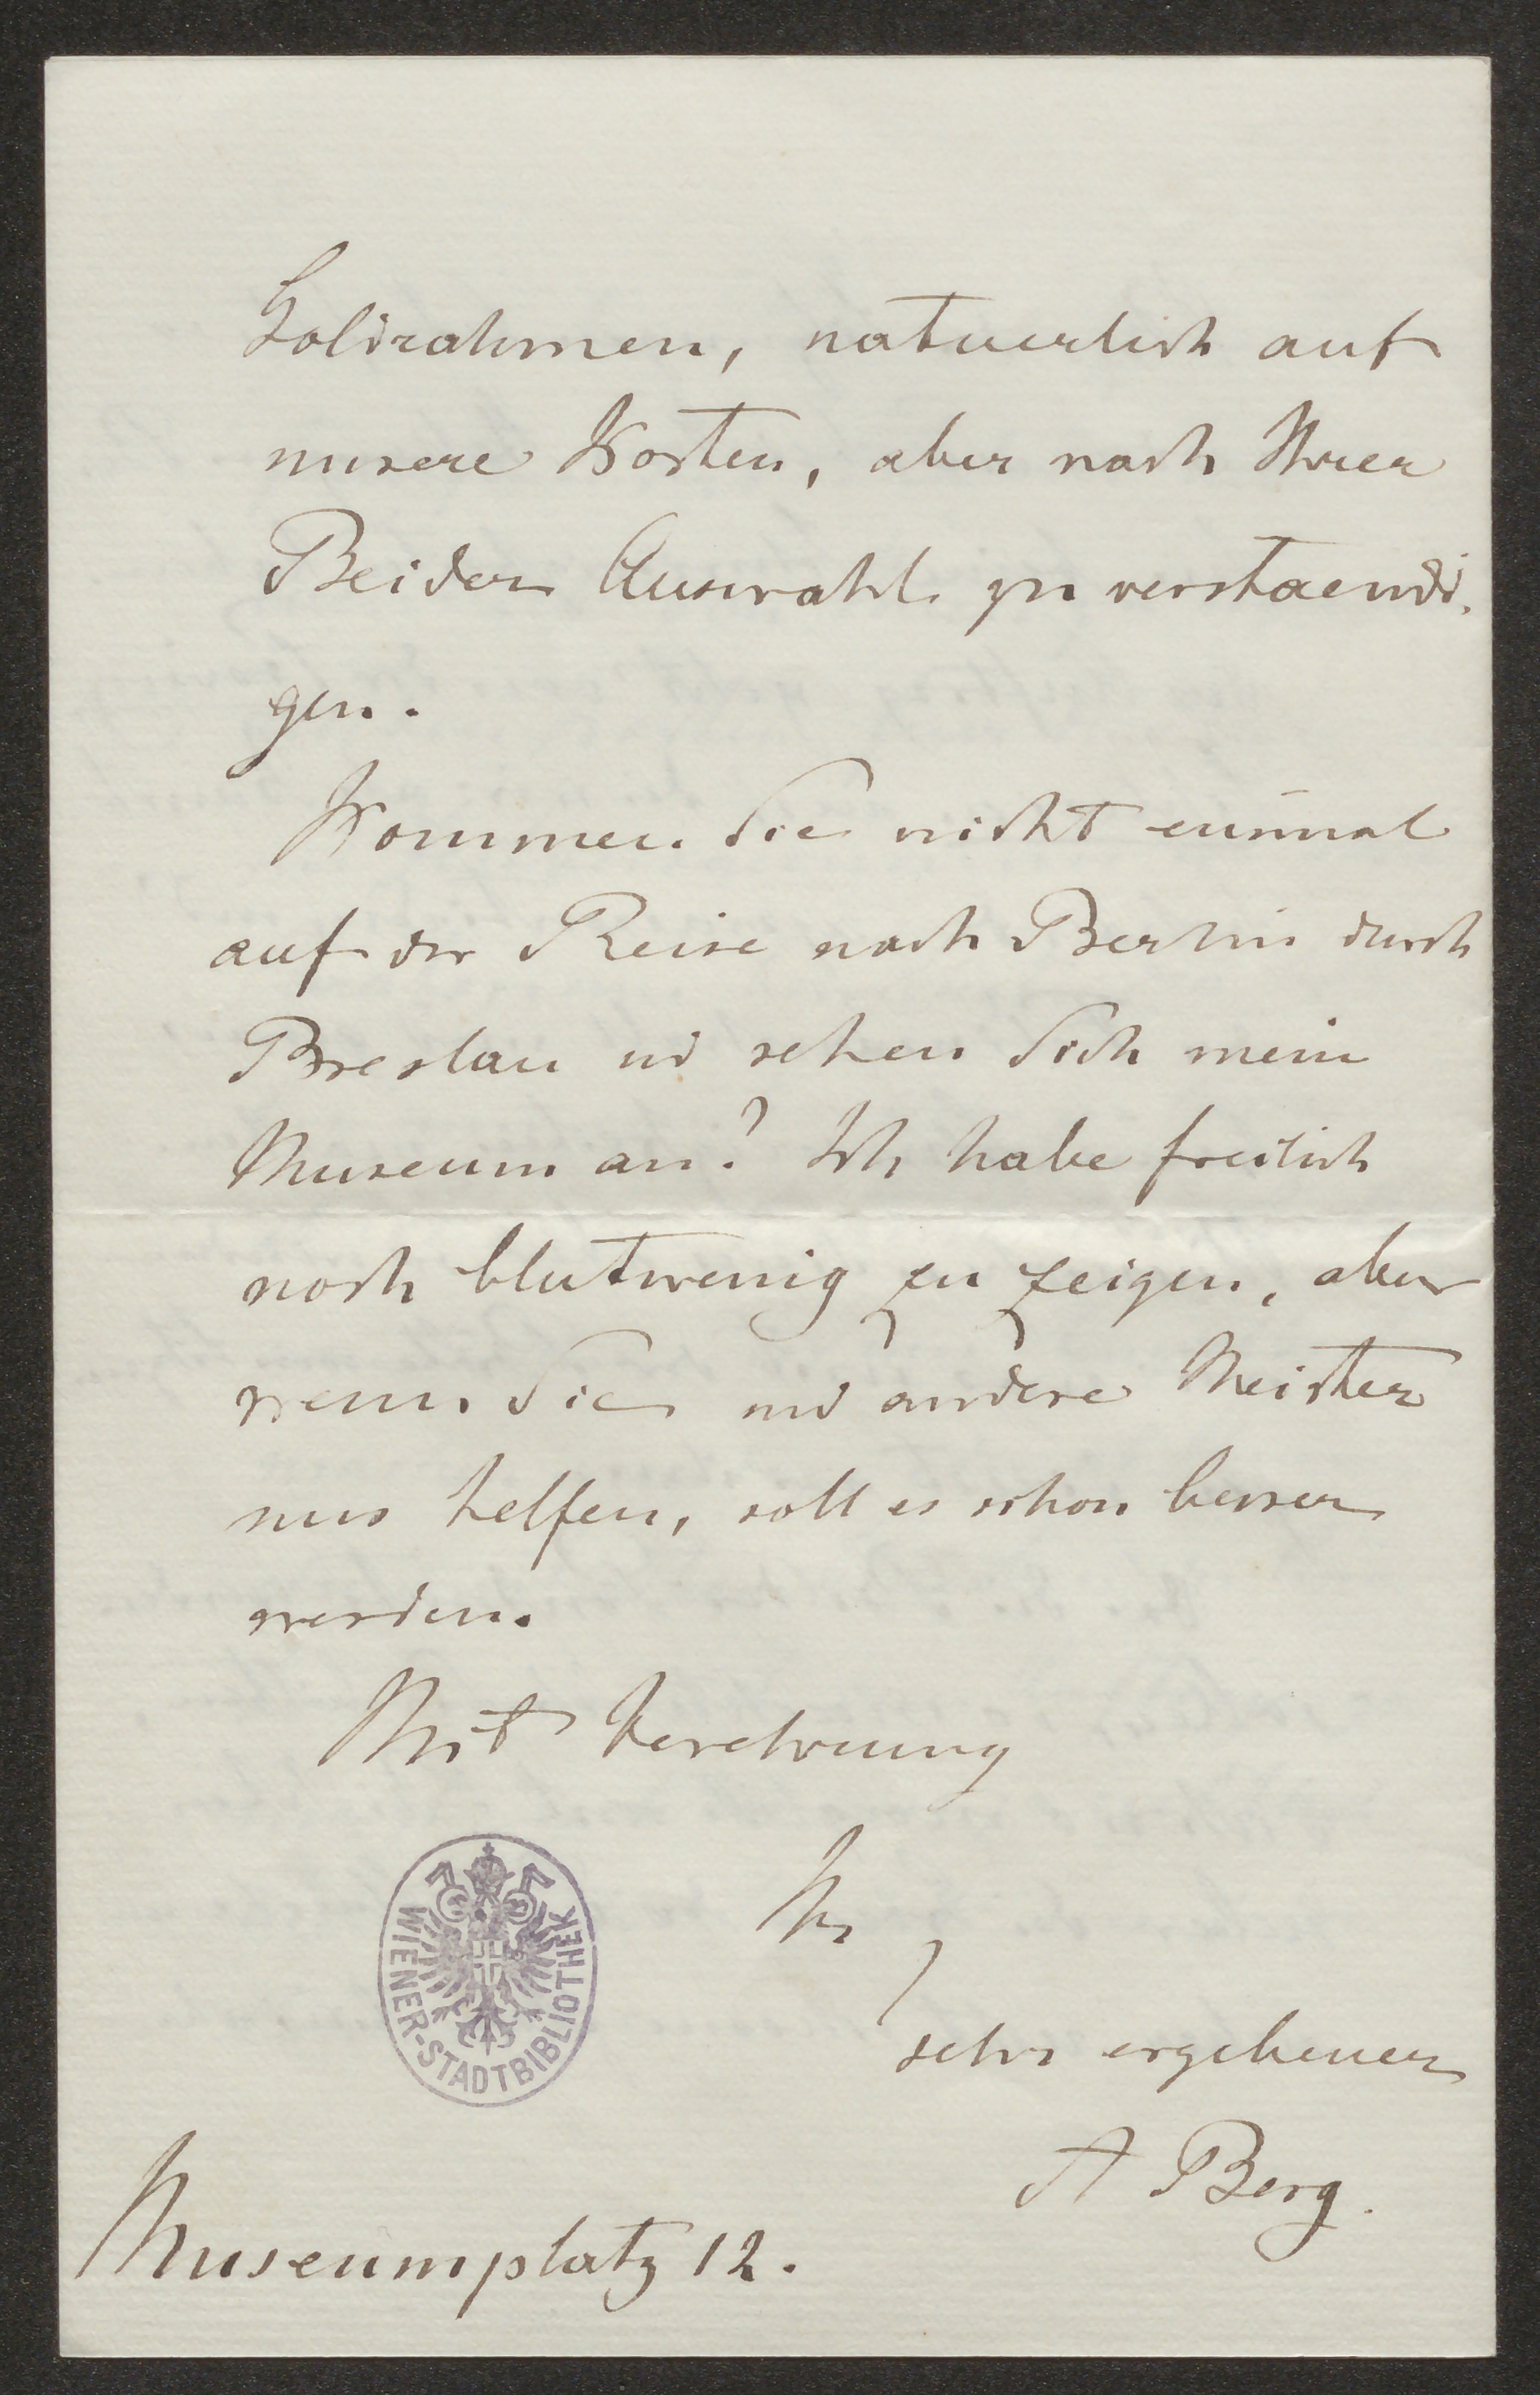 Goldrahmen, natuerlich auf
unsere Kosten, aber nach Ihrer
Beider Auswahl zu verstaendi-
gen.
Kommen Sie nicht einmal
auf der Reise nach Berlin durch
Breslau und sehen Sich mein
Museum an? Ich habe freilich
noch blutwenig zu zeigen, aber
wenn Sie und andere Meister
uns helfen, soll es schon besser
werden.
Mit Verehrung
Ihr
sehr ergebener
A Berg.
Museumplatz 12.
WIENER-STADTBIBLIOTHEK